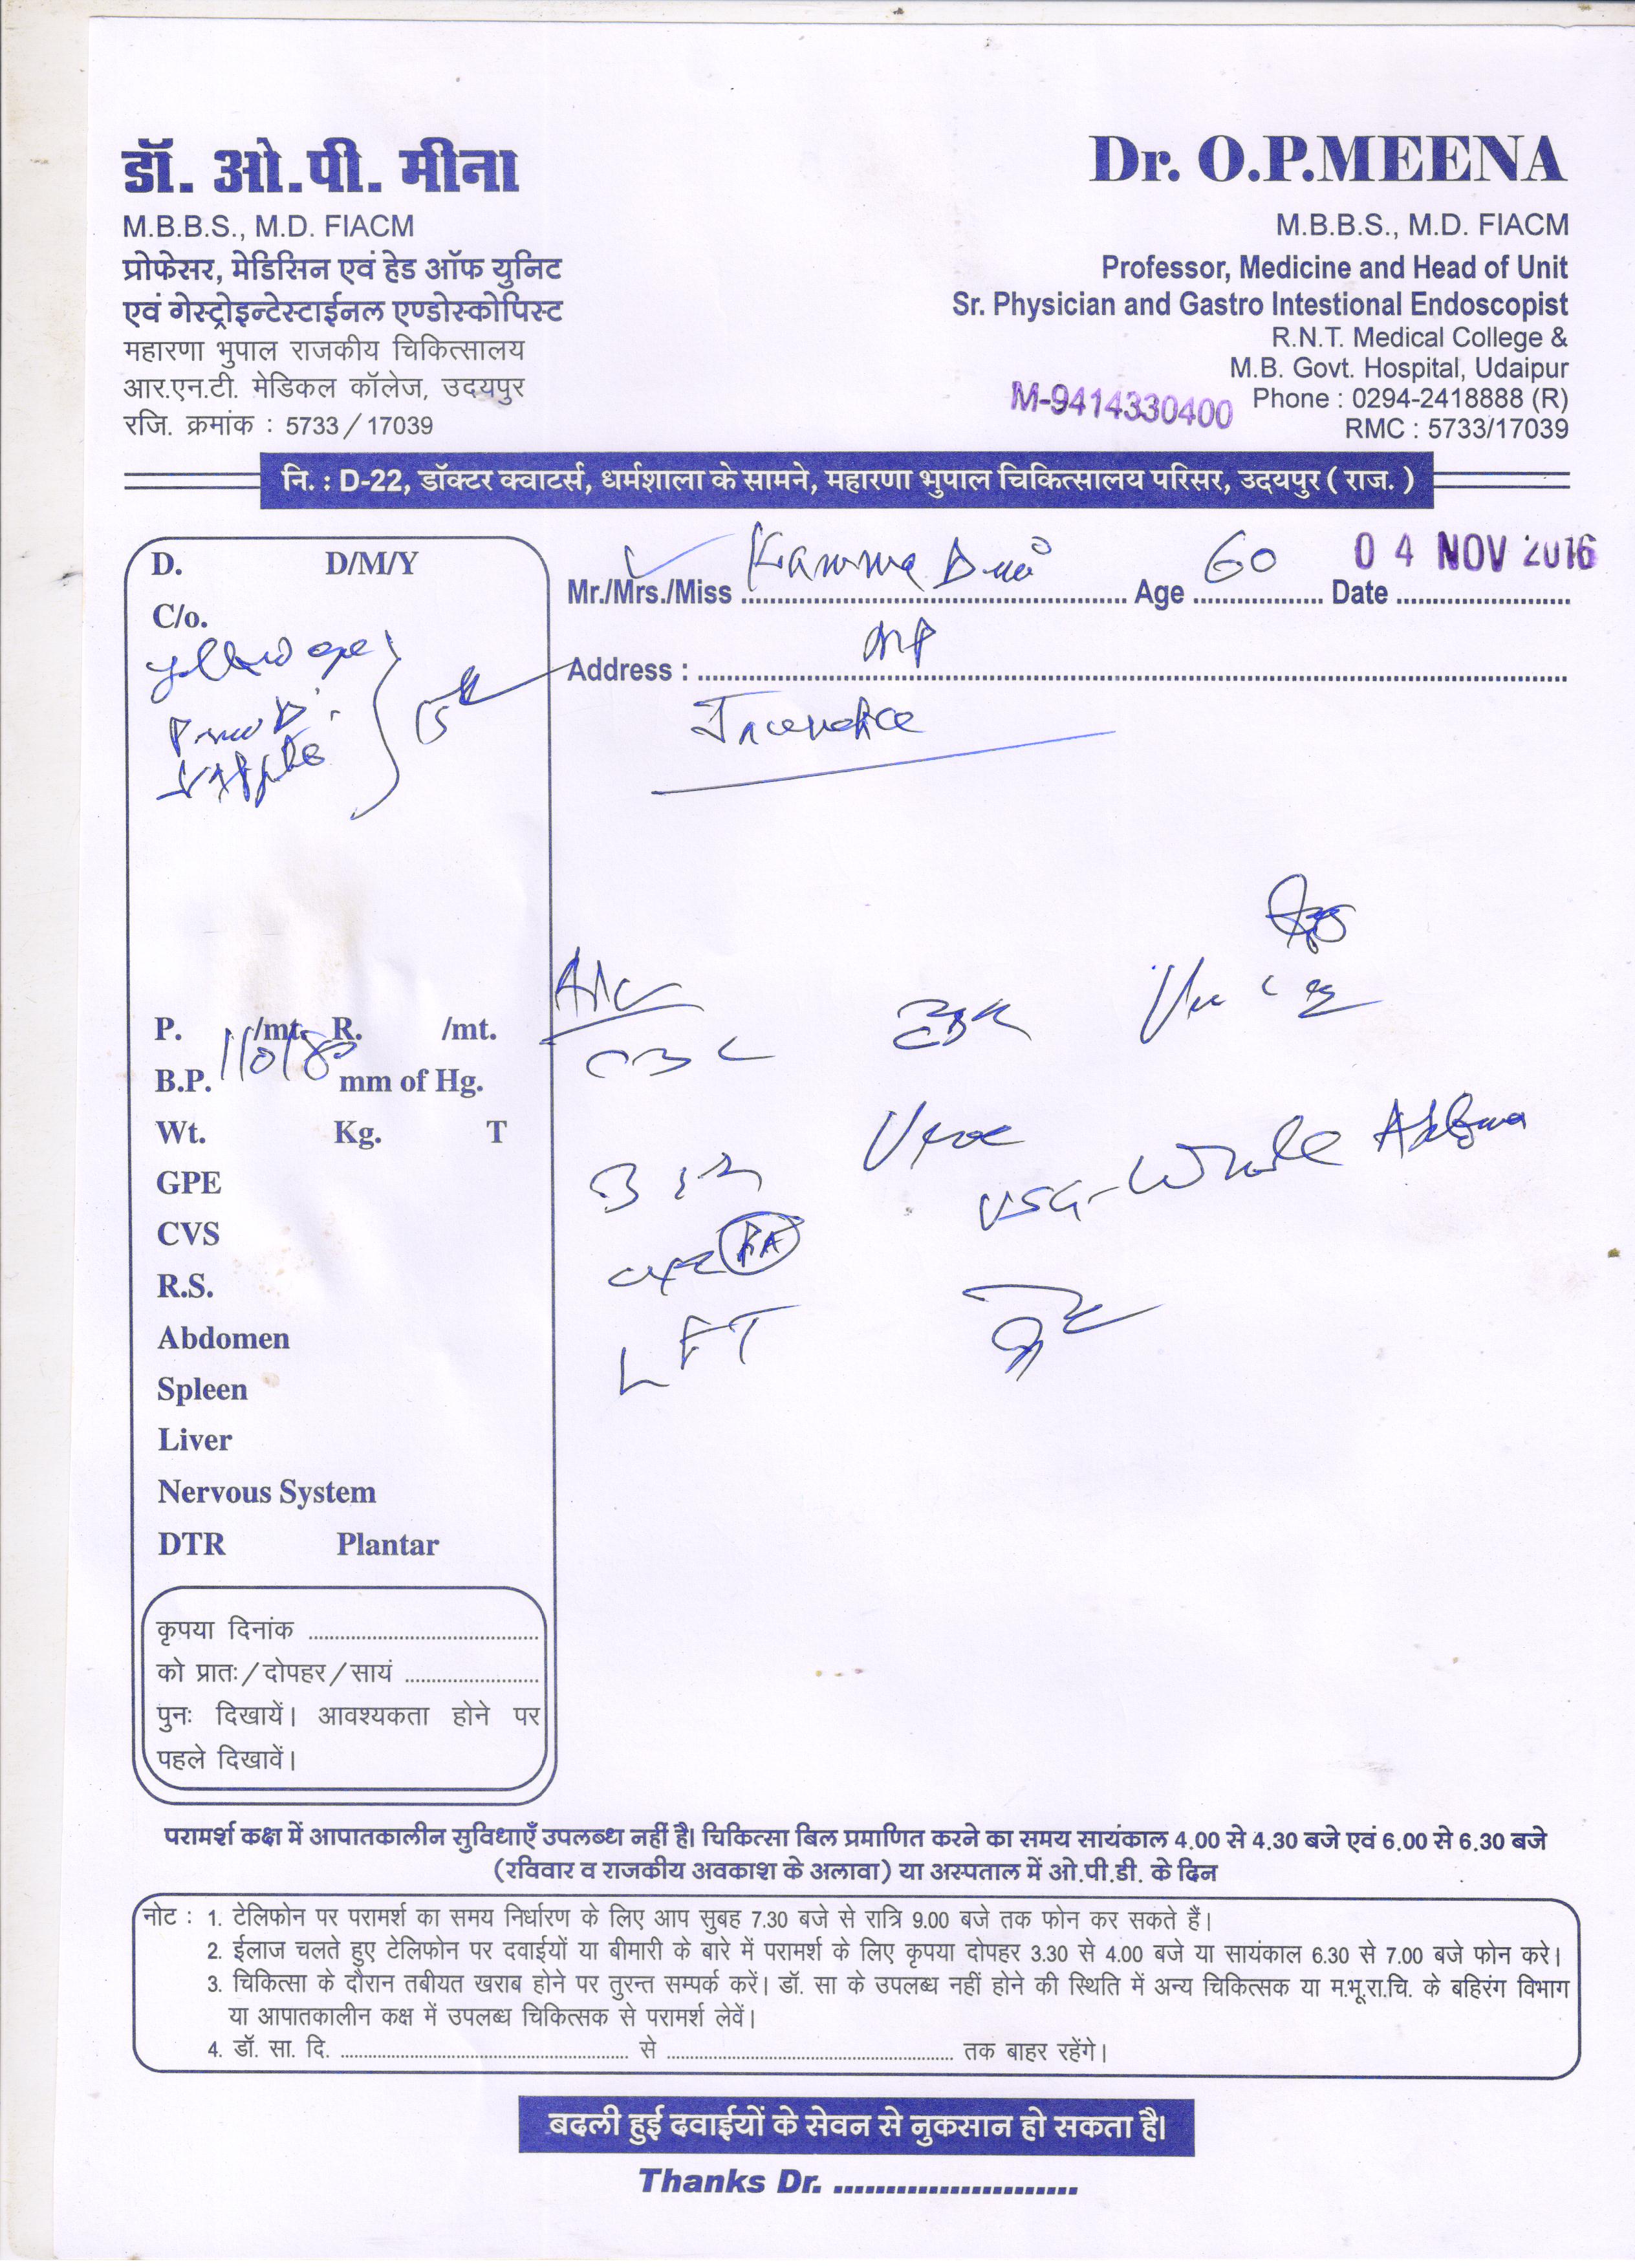 डॉ. ओ.पी. मीना
M.B.B.S., M.D. FIACM
प्रोफेसर, मेडिसिन एवं हेड ऑफ युनिट
एवं गेस्ट्रोइन्टेस्टाईनल एण्डोस्कोपिस्ट
महारणा भुपाल राजकीय चिकित्सालय
आर.एन.टी. मेडिकल कॉलेज, उदयपुर
रजि. क्रमांक : 5733/17039
Dr. O.P.MEENA
M.B.B.S., M.D. FIACM
Professor, Medicine and Head of Unit
Sr. Physician and Gastro Intestional Endoscopist
R.N.T. Medical College &
M.B. Govt. Hospital, Udaipur
M-9414330400 Phone : 0294-2418888 (R)
RMC : 5733/17039
नि. : D-22, डॉक्टर क्वाटर्स, धर्मशाला के सामने, महारणा भुपाल चिकित्सालय परिसर, उदयपुर ( राज. )
Mr./Mrs./Miss Age 60 Date 04 NOV 2016
Address : MP
D. D/M/Y
C/o.
P. /mt. R. /mt.
B.P. 110/80 mm of Hg.
Wt. Kg. T
GPE
CVS
R.S.
Abdomen
Spleen
Liver
Nervous System
DTR Plantar
CBC
USG- Whole
LFT
कृपया दिनांक
को प्रातः/दोपहर/सायं
पुनः दिखायें। आवश्यकता होने पर
पहले दिखावें।
परामर्श कक्ष में आपातकालीन सुविधाएँ उपलब्ध नहीं है। चिकित्सा बिल प्रमाणित करने का समय सायंकाल 4.00 से 4.30 बजे एवं 6.00 से 6.30 बजे
(रविवार व राजकीय अवकाश के अलावा) या अस्पताल में ओ.पी.डी. के दिन
नोट : 1. टेलिफोन पर परामर्श का समय निर्धारण के लिए आप सुबह 7.30 बजे से रात्रि 9.00 बजे तक फोन कर सकते हैं।
2. ईलाज चलते हुए टेलिफोन पर दवाईयों या बीमारी के बारे में परामर्श के लिए कृपया दोपहर 3.30 से 4.00 बजे या सायंकाल 6.30 से 7.00 बजे फोन करे।
3. चिकित्सा के दौरान तबीयत खराब होने पर तुरन्त सम्पर्क करें। डॉ. सा के उपलब्ध नहीं होने की स्थिति में अन्य चिकित्सक या म.भू.रा.चि. के बहिरंग विभाग
या आपातकालीन कक्ष में उपलब्ध चिकित्सक से परामर्श लेवें।
4. डॉ. सा. दि. से तक बाहर रहेंगे।
बदली हुई दवाईयों के सेवन से नुकसान हो सकता है।
Thanks Dr.